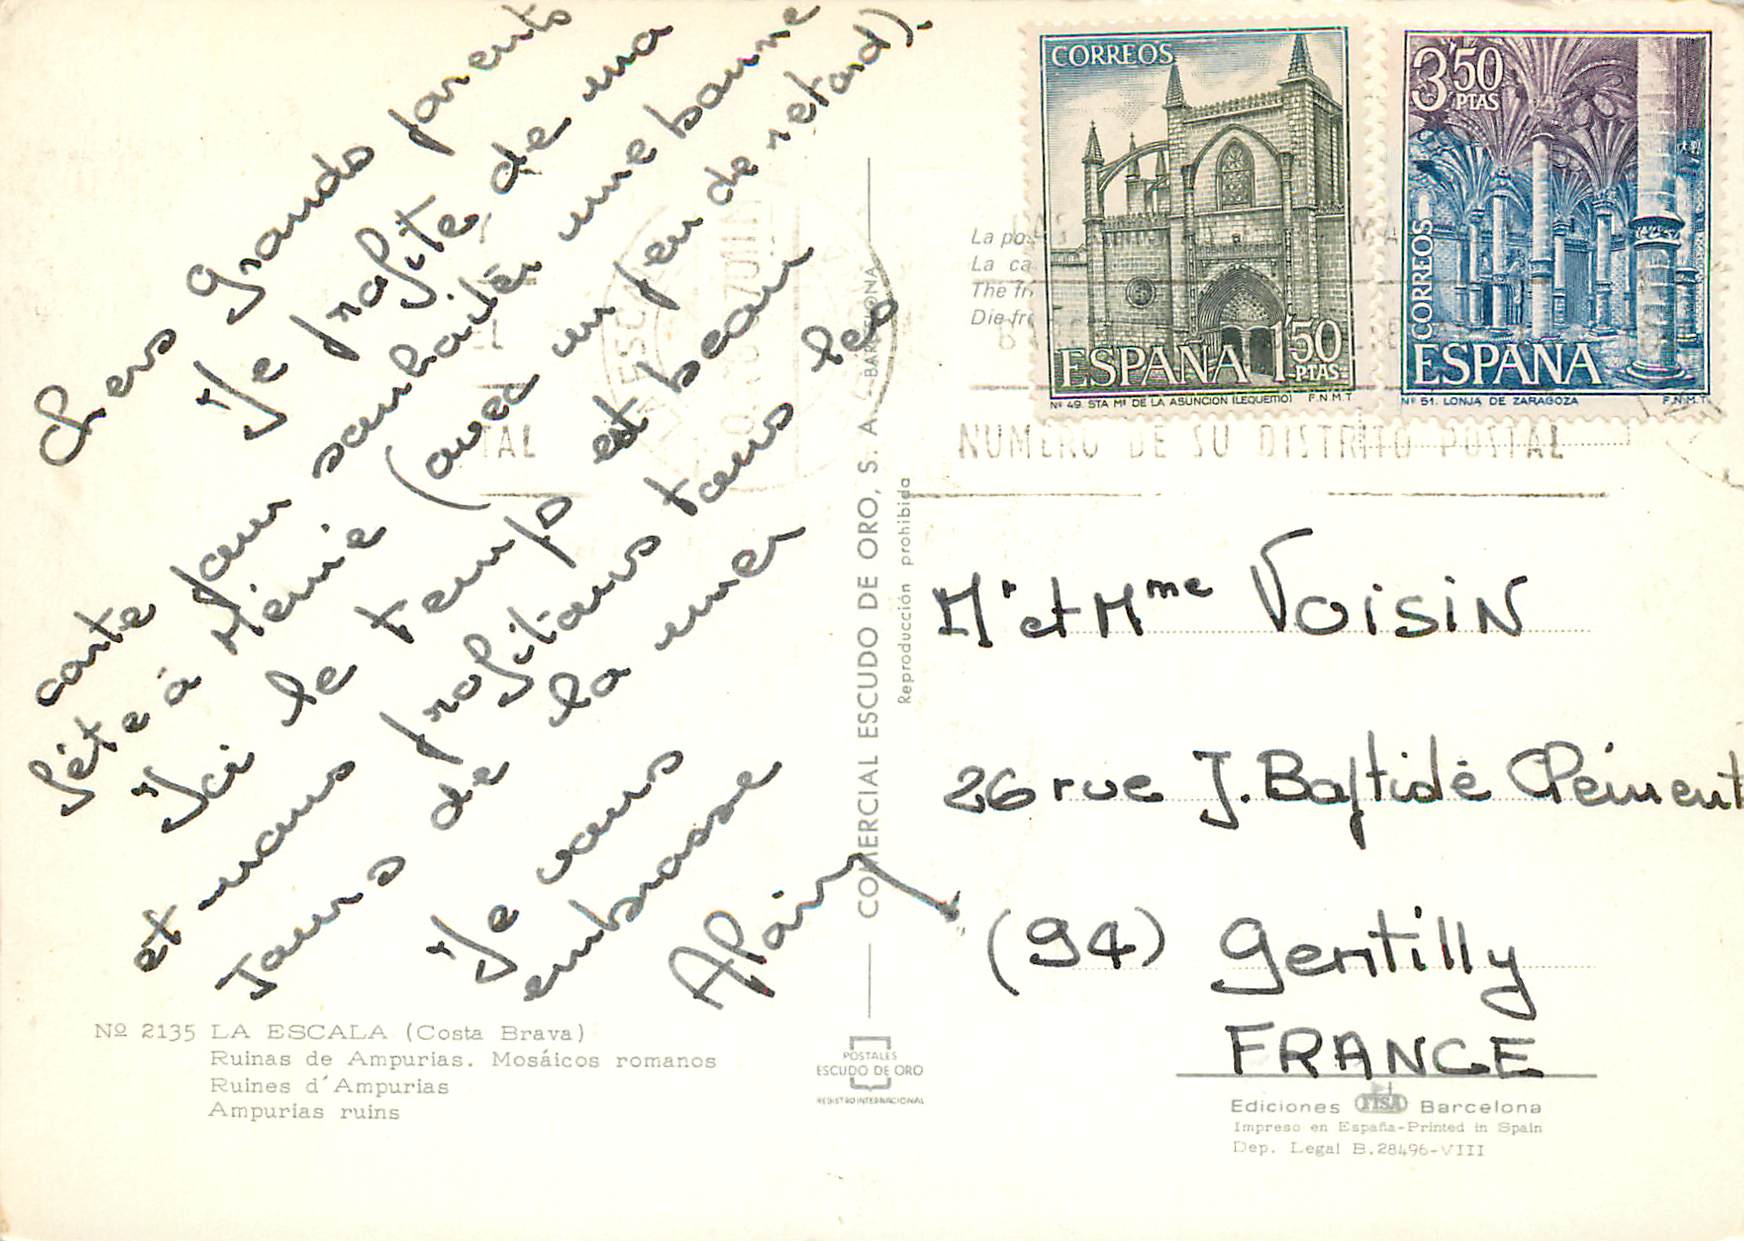 Chers Grands parents
Je profite de ma
carte pour souhaiter une bonne
fête à Mémie (avec un peu de retard).
Ici le temps est beau
et nous profitons tous les
jours de la mer
Je vous
embrasse
Alain
Nº 2135 LA ESCALA (Costa Brava)
Ruinas de Ampurias. Mosáicos romanos
Ruines d'Ampurias
Ampurias ruins
COMERCIAL ESCUDO DE ORO, S. A. - BARCELONA
Reproducción prohibida
POSTALES
ESCUDO DE ORO
REGISTRO INTERNACIONAL
La po
La ca
The fr
Die fr
CORREOS
ESPAÑA 1'50 PTAS
Nº 49. STA Mª DE LA ASUNCION (LEQUEITIO) F.N.M.T
3'50 PTAS
CORREOS
ESPAÑA
Nº 51. LONJA DE ZARAGOZA F.N.M.T
NUMERO DE SU DISTRITO POSTAL
TAL
Mr et Mme VOISIN
26 rue J. Baptiste Clément
(94) Gentilly
FRANCE
Ediciones FISA Barcelona
Impreso en España-Printed in Spain
Dep. Legal B.28496-VIII